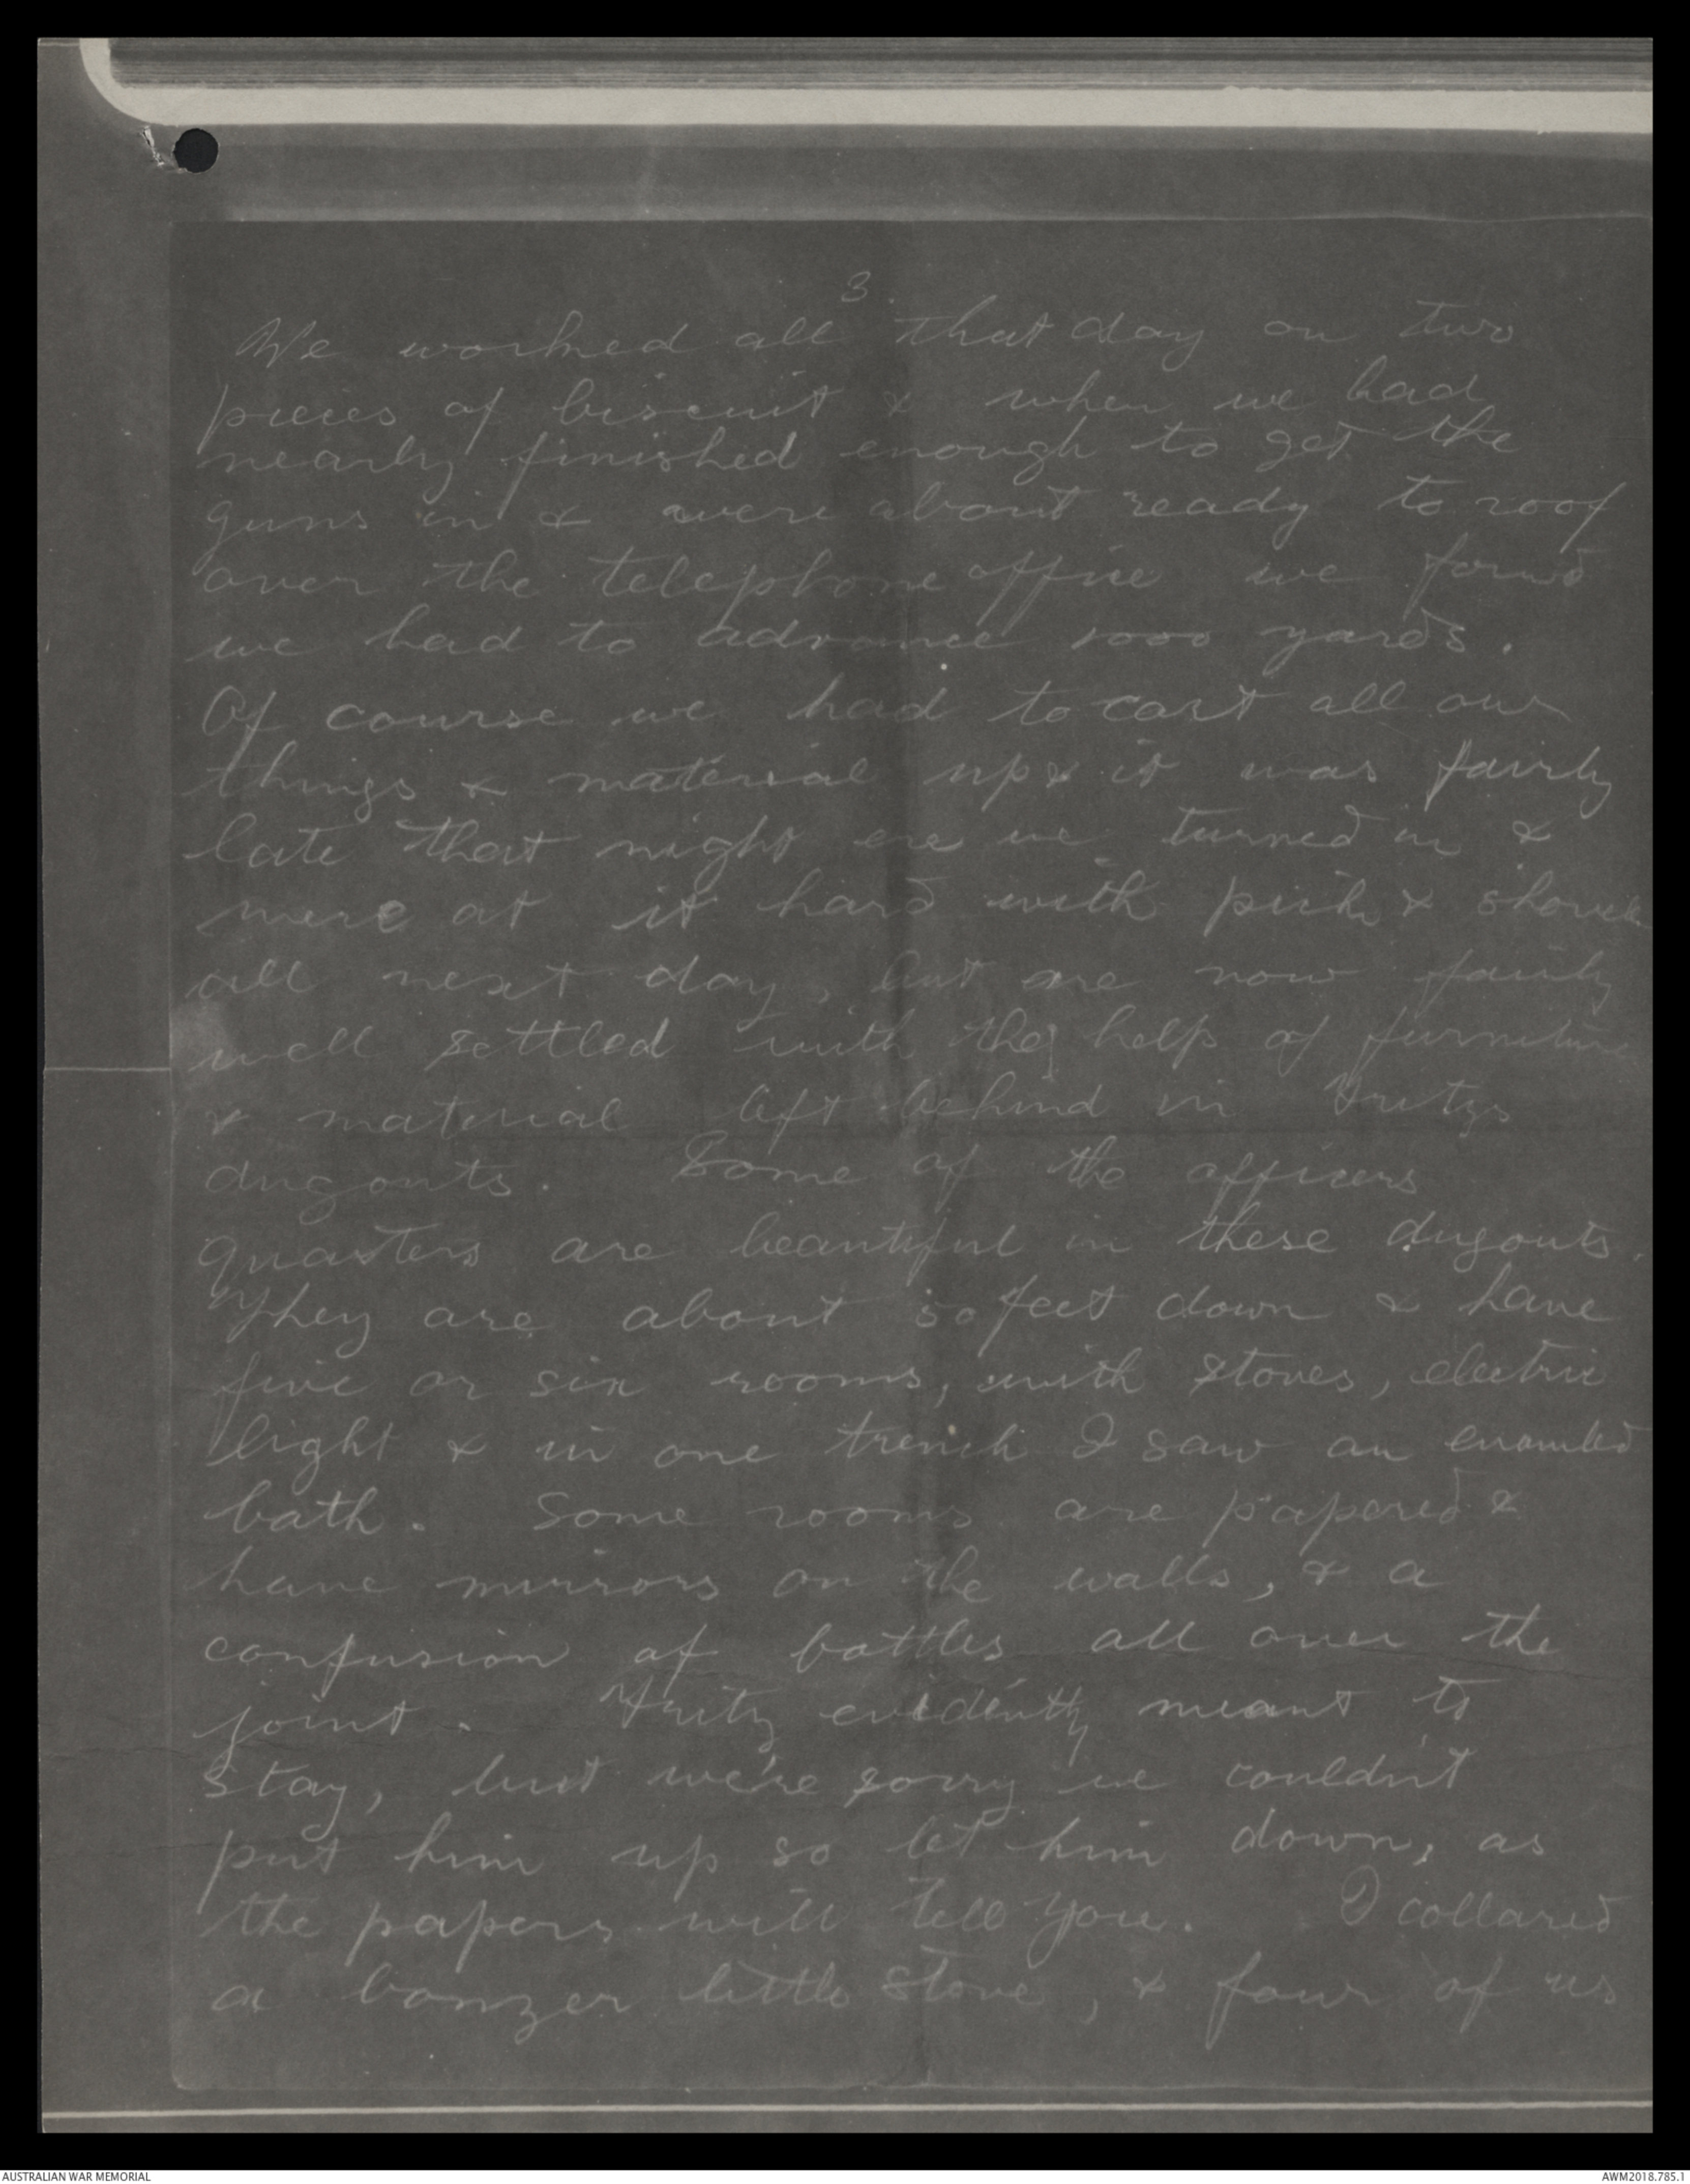 3.
We worked all that day on two
pieces of biscuit & when we had
nearly finished enough to get the
guns in & were about ready to roof
over the telephone office we found
we had to advance 1000 yards.
Of course we had to cart all our
things & material up & it was fairly
late that night ere we turned in &
were at it hard with pick & shovel
all next day, but are now fairly
well settled with the help of furniture
& material left behind in Fritzs
dugouts. Some of the officers
quarters are beautiful in these dugouts.
They are about 50 feet down & have
five or six rooms, with stoves, electric
light & in one trench I saw an enameled
bath. Some rooms are papered &
have mirrors on the walls, & a
confusion of bottles all over the
joint. Fritz evidently meant to
stay, but we're sorry we couldn't
put him up so let him down, as
the papers will tell you. I collared
a bonzer little stove, & four of us
AUSTRALIAN WAR MEMORIAL
AWM2018.785.1